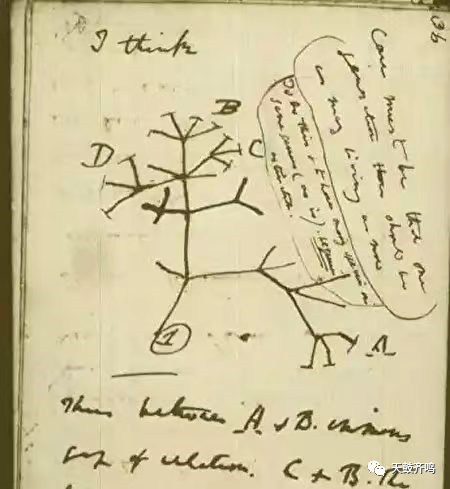 36
I think
Case must be that one
generation then should be
as many living as now
To do this & to have many species in
same genus (as is). requires
extinction.
B
D
C
A
1
Thus between A. & B. immense
gap of relation. C & B. The
天豉齐鸣